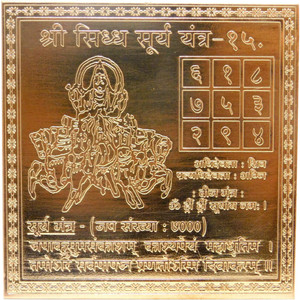 श्री सिध्ध सूर्य यंत्र-१५.
६ १ ८
७ ५ ३
२ ९ ४
अधिदेवता : शिव
प्रत्यधिदेवता : अग्नि
बीज मंत्र :
ॐ ह्रीं ह्रौं सूर्याय नमः ।
सूर्य मंत्र - (जप संख्या : ७०००)
जपाकुसुमसंकाशम् काश्यपेयं महाद्युतिम् ।
तमोऽरिं सर्वपापघ्नं प्रणतोऽस्मि दिवाकरम् ॥